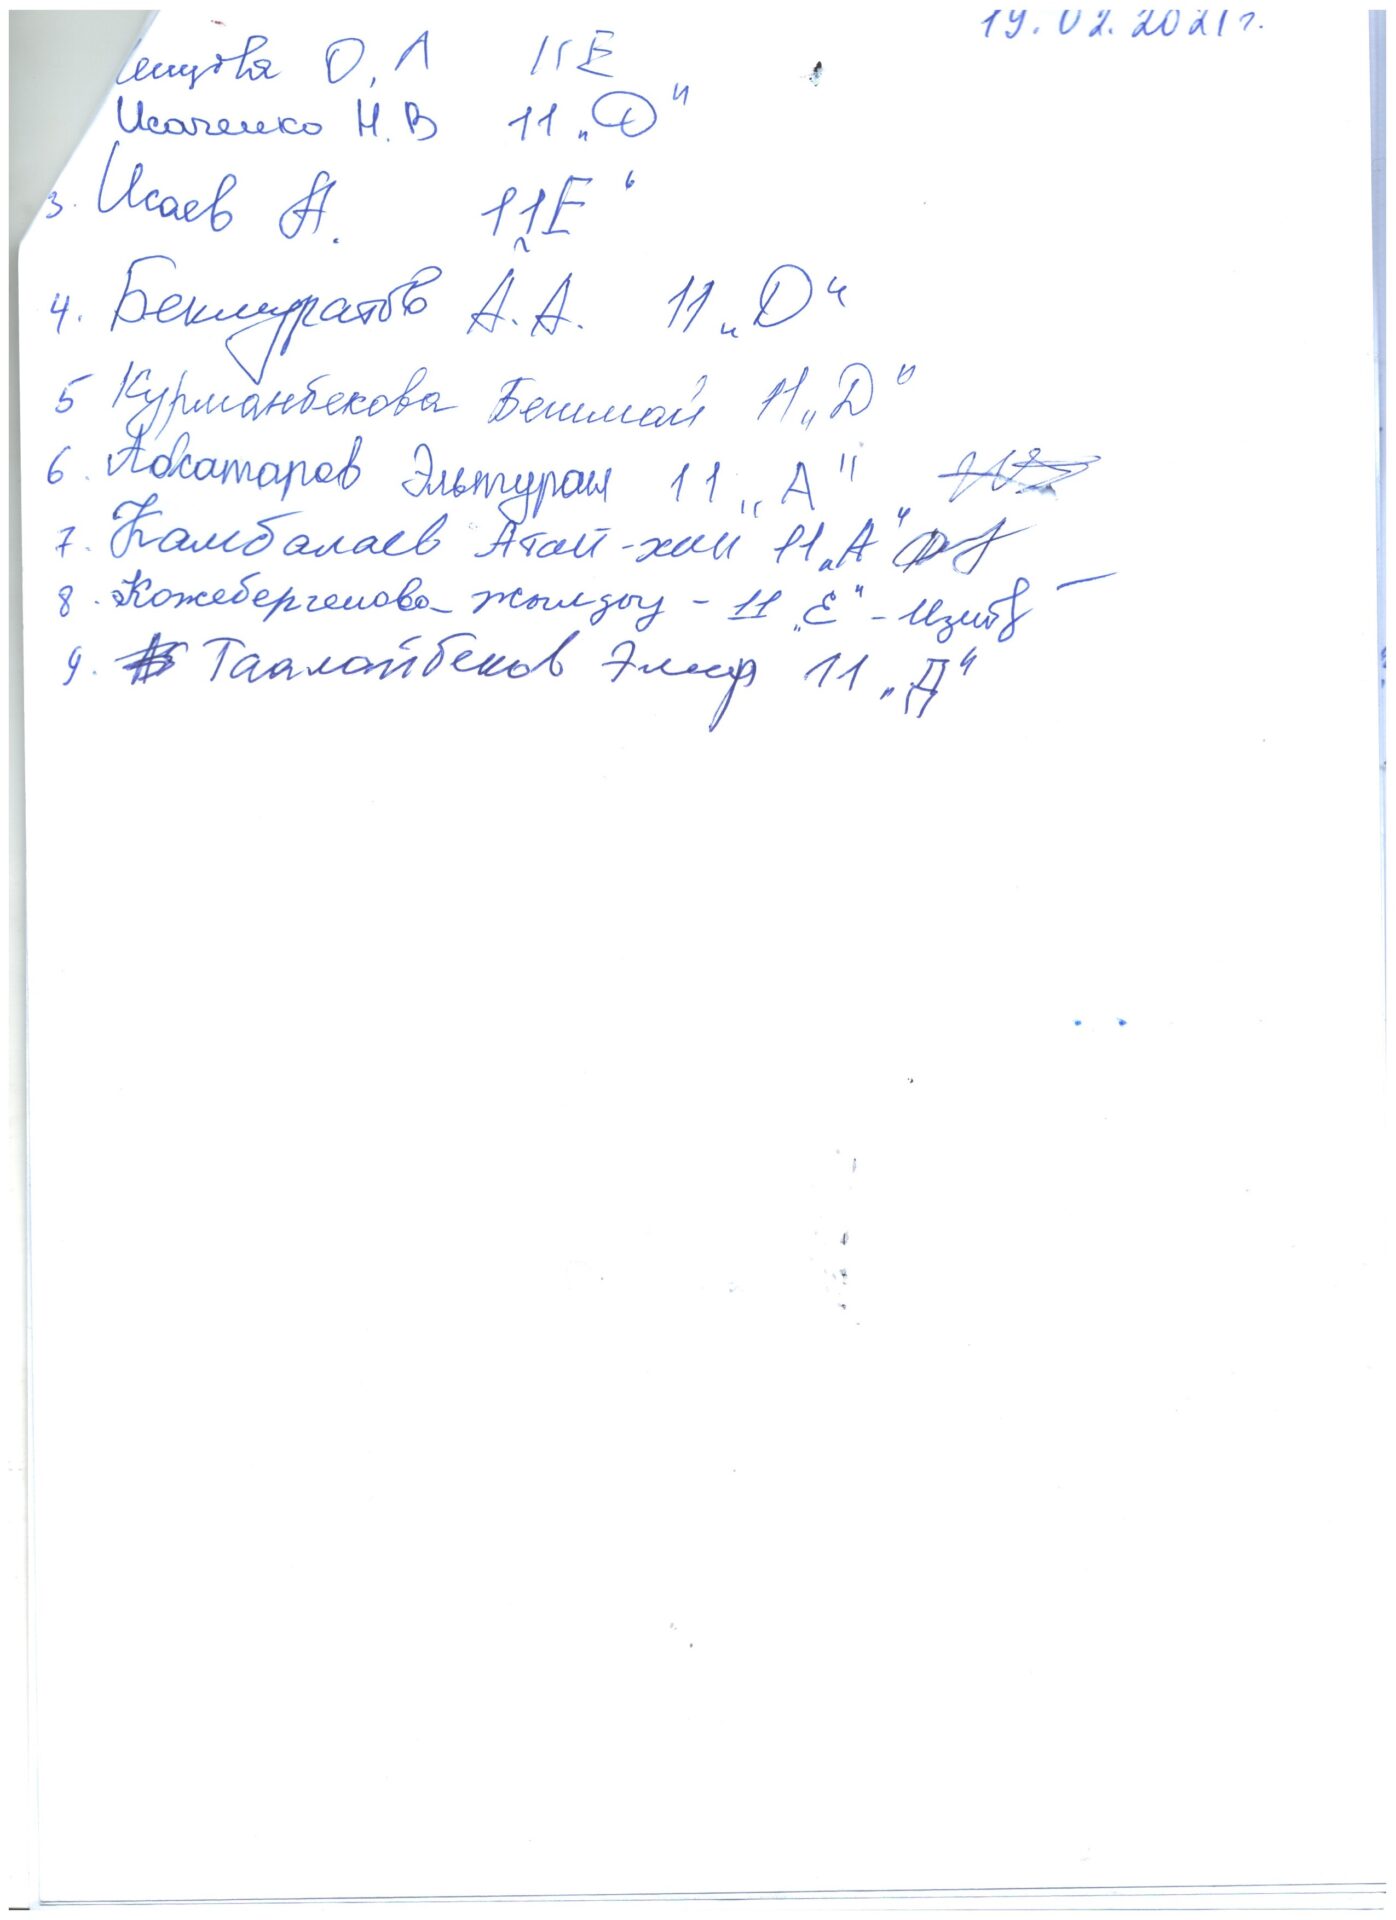 19.02.2021 г.
О, Л 11 Е
Исаченко Н. В 11 „D"
3. Исаев А. 11 „Е"
4. Бекмуратов А. А. 11 „D"
5 Курманбекова Бешмай 11 „D"
6. Абсатаров Эльтуран 11 „А"
7. Камбалаев Атай-хан 11 „А"
8. Кожебергенова Жылдыз - 11 „Е" -
9. Таалайбеков Элир 11 „Д"